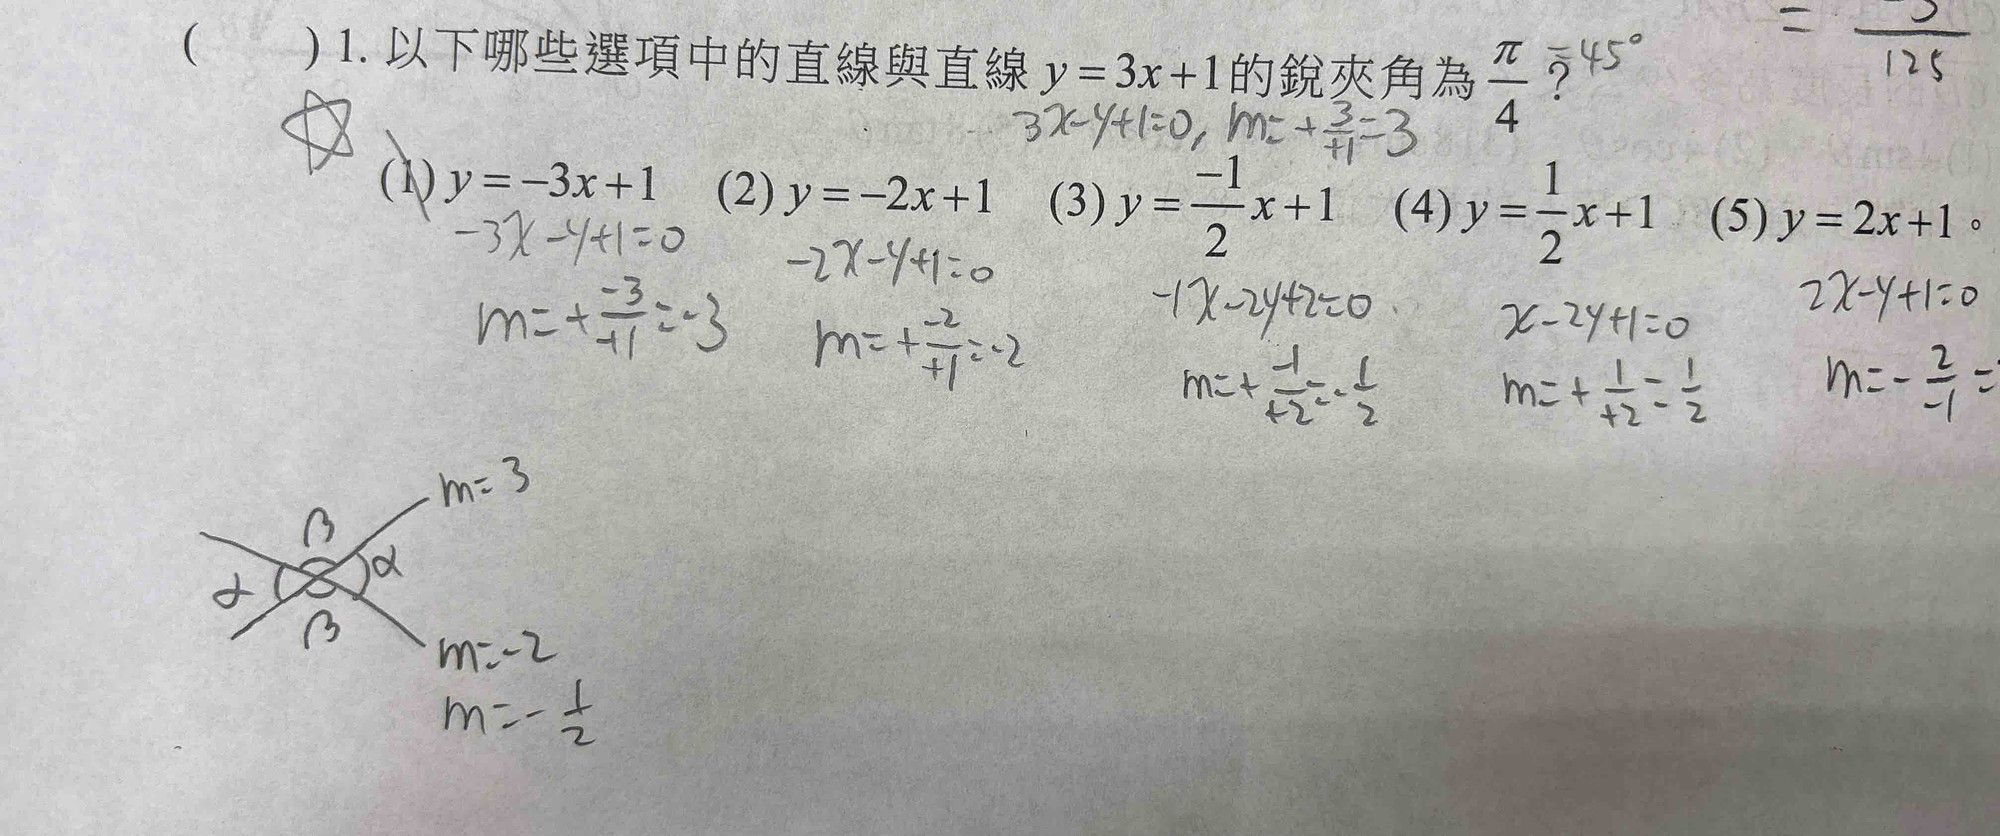 = -3/125
( ) 1. 以下哪些選項中的直線與直線 y = 3x + 1 的銳夾角為 π/4 ? = 45°
3x-y+1=0, m=+3/+1=3
(1) y = -3x + 1 (2) y = -2x + 1 (3) y = -1/2 x + 1 (4) y = 1/2 x + 1 (5) y = 2x + 1。
-3x-y+1=0 -2x-y+1=0 -1x-2y+2=0 x-2y+1=0 2x-y+1=0
m=+-3/+1=-3 m=+-2/+1=-2 m=+-1/+2=-1/2 m=+1/+2=1/2 m=-2/-1=
m=3
β
α α
β
m=-2
m=-1/2